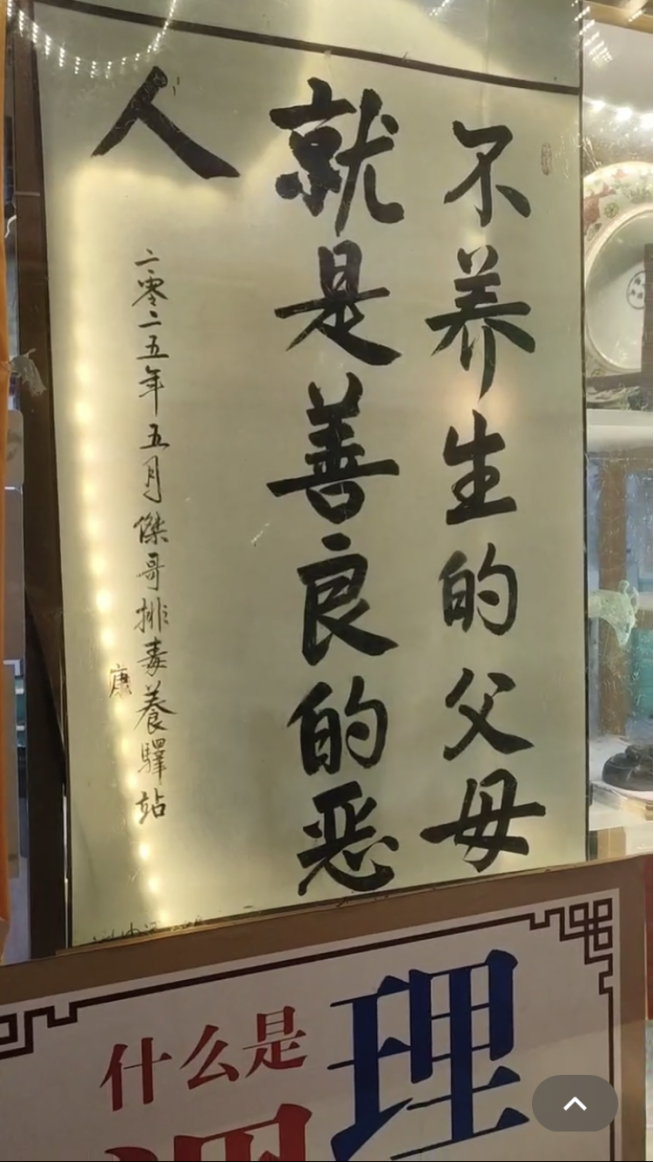 不养生的父母
就是善良的恶
人
二零二五年五月傑哥排毒養驛站
康
什么是
理